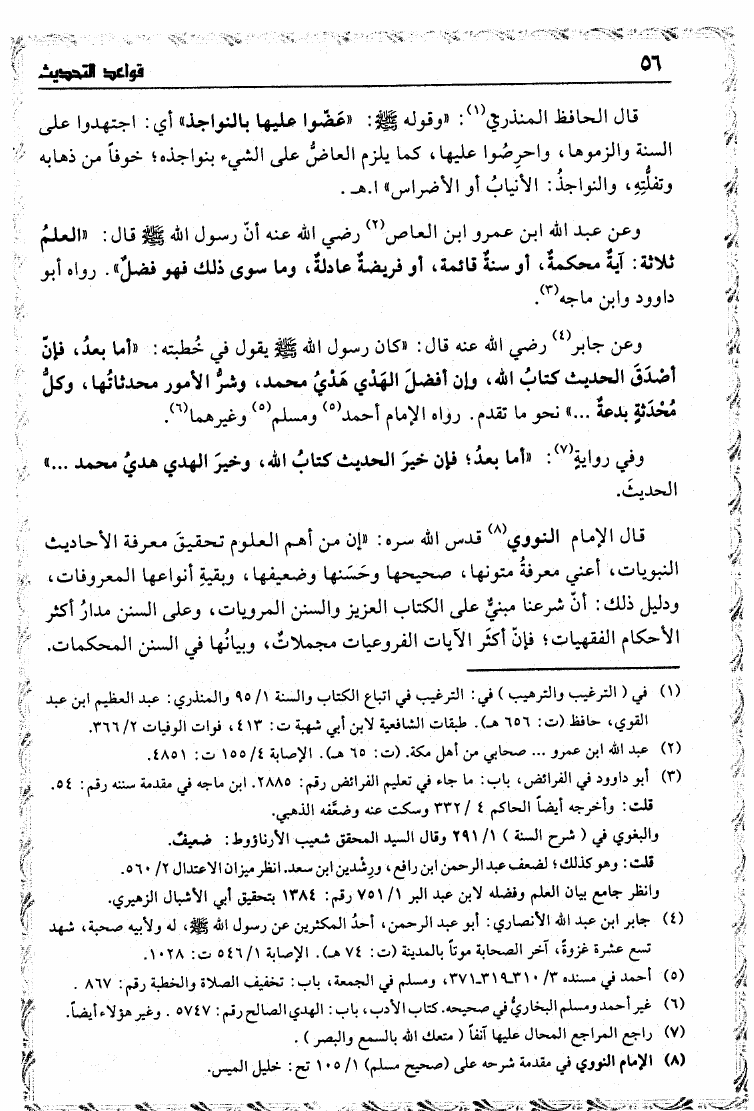 ٥٦
قواعد التحديث
قال الحافظ المنذري(١): «وقوله ﷺ: «عَضّوا عليها بالنواجذ» أي: اجتهدوا على
السنة والزموها، واحرِصُوا عليها، كما يلزم العاضُّ على الشيء بنواجذه؛ خوفاً من ذهابه
وتفلُّتِهِ، والنواجذُ: الأنيابُ أو الأضراس» ا.هـ.
وعن عبد الله ابن عمرو ابن العاص(٢) رضي الله عنه أنّ رسول الله ﷺ قال: «العلمُ
ثلاثة: آيةٌ محكمةٌ، أو سنةٌ قائمة، أو فريضةٌ عادلةٌ، وما سوى ذلك فهو فضلٌ». رواه أبو
داوود وابن ماجه(٣).
وعن جابر(٤) رضي الله عنه قال: «كان رسول الله ﷺ يقول في خُطبته: «أما بعدُ، فإنّ
أصْدَقَ الحديث كتابُ الله، وإن أفضلَ الهَدْي هَدْيُ محمد، وشرُّ الأمور محدثاتُها، وكلُّ
مُحْدَثةٍ بدعةٌ ...» نحو ما تقدم. رواه الإمام أحمد(٥) ومسلم(٥) وغيرهما(٦).
وفي روايةٍ(٧): «أما بعدُ؛ فإن خيرَ الحديث كتابُ الله، وخيرَ الهدي هديُ محمد ...»
الحديثَ.
قال الإمام النووي(٨) قدس الله سره: «إن من أهم العلوم تحقيقَ معرفة الأحاديث
النبويات، أعني معرفةُ متونها، صحيحها وحَسَنها وضعيفها، وبقيةِ أنواعها المعروفات،
ودليل ذلك: أنّ شرعنا مبنيٌّ على الكتاب العزيز والسنن المرويات، وعلى السنن مدارُ أكثر
الأحكام الفقهيات؛ فإنّ أكثَر الآيات الفروعيات مجملاتٌ، وبيانُها في السنن المحكمات.
(١) في (الترغيب والترهيب) في: الترغيب في اتباع الكتاب والسنة ١/ ٩٥ والمنذري: عبد العظيم ابن عبد
القوي، حافظ (ت: ٦٥٦ هـ). طبقات الشافعية لابن أبي شهبة ت: ٤١٣، فوات الوفيات ٢/ ٣٦٦.
(٢) عبد الله ابن عمرو ... صحابي من أهل مكة. (ت: ٦٥ هـ). الإصابة ٤/ ١٥٥ ت: ٤٨٥١.
(٣) أبو داوود في الفرائض، باب: ما جاء في تعليم الفرائض رقم: ٢٨٨٥. ابن ماجه في مقدمة سننه رقم: ٥٤.
قلت: وأخرجه أيضاً الحاكم ٤ / ٣٣٢ وسكت عنه وضعَّفه الذهبي.
والبغوي في (شرح السنة) ١/ ٢٩١ وقال السيد المحقق شعيب الأرناؤوط: ضعيفٌ.
قلت: وهو كذلك؛ لضعف عبد الرحمن ابن رافع، ورِشْدين ابن سعد. انظر ميزان الاعتدال ٢/ ٥٦٠.
وانظر جامع بيان العلم وفضله لابن عبد البر ١/ ٧٥١ رقم: ١٣٨٤ بتحقيق أبي الأشبال الزهيري.
(٤) جابر ابن عبد الله الأنصاري: أبو عبد الرحمن، أحدُ المكثرين عن رسول الله ﷺ، له ولأبيه صحبة، شهد
تسع عشرة غزوةً، آخر الصحابة موتاً بالمدينة (ت: ٧٤ هـ). الإصابة ١/ ٥٤٦ ت: ١٠٢٨.
(٥) أحمد في مسنده ٣/ ٣١٠ـ٣١٩ـ٣٧١، ومسلم في الجمعة، باب: تخفيف الصلاة والخطبة رقم: ٨٦٧ .
(٦) غير أحمد ومسلم البخاريُّ في صحيحه. كتاب الأدب، باب: الهدي الصالح رقم: ٥٧٤٧ . وغير هؤلاء أيضاً.
(٧) راجع المراجع المحال عليها آنفاً (متعك الله بالسمع والبصر).
(٨) الإمام النووي في مقدمة شرحه على (صحيح مسلم) ١/ ١٠٥ تح: خليل الميس.